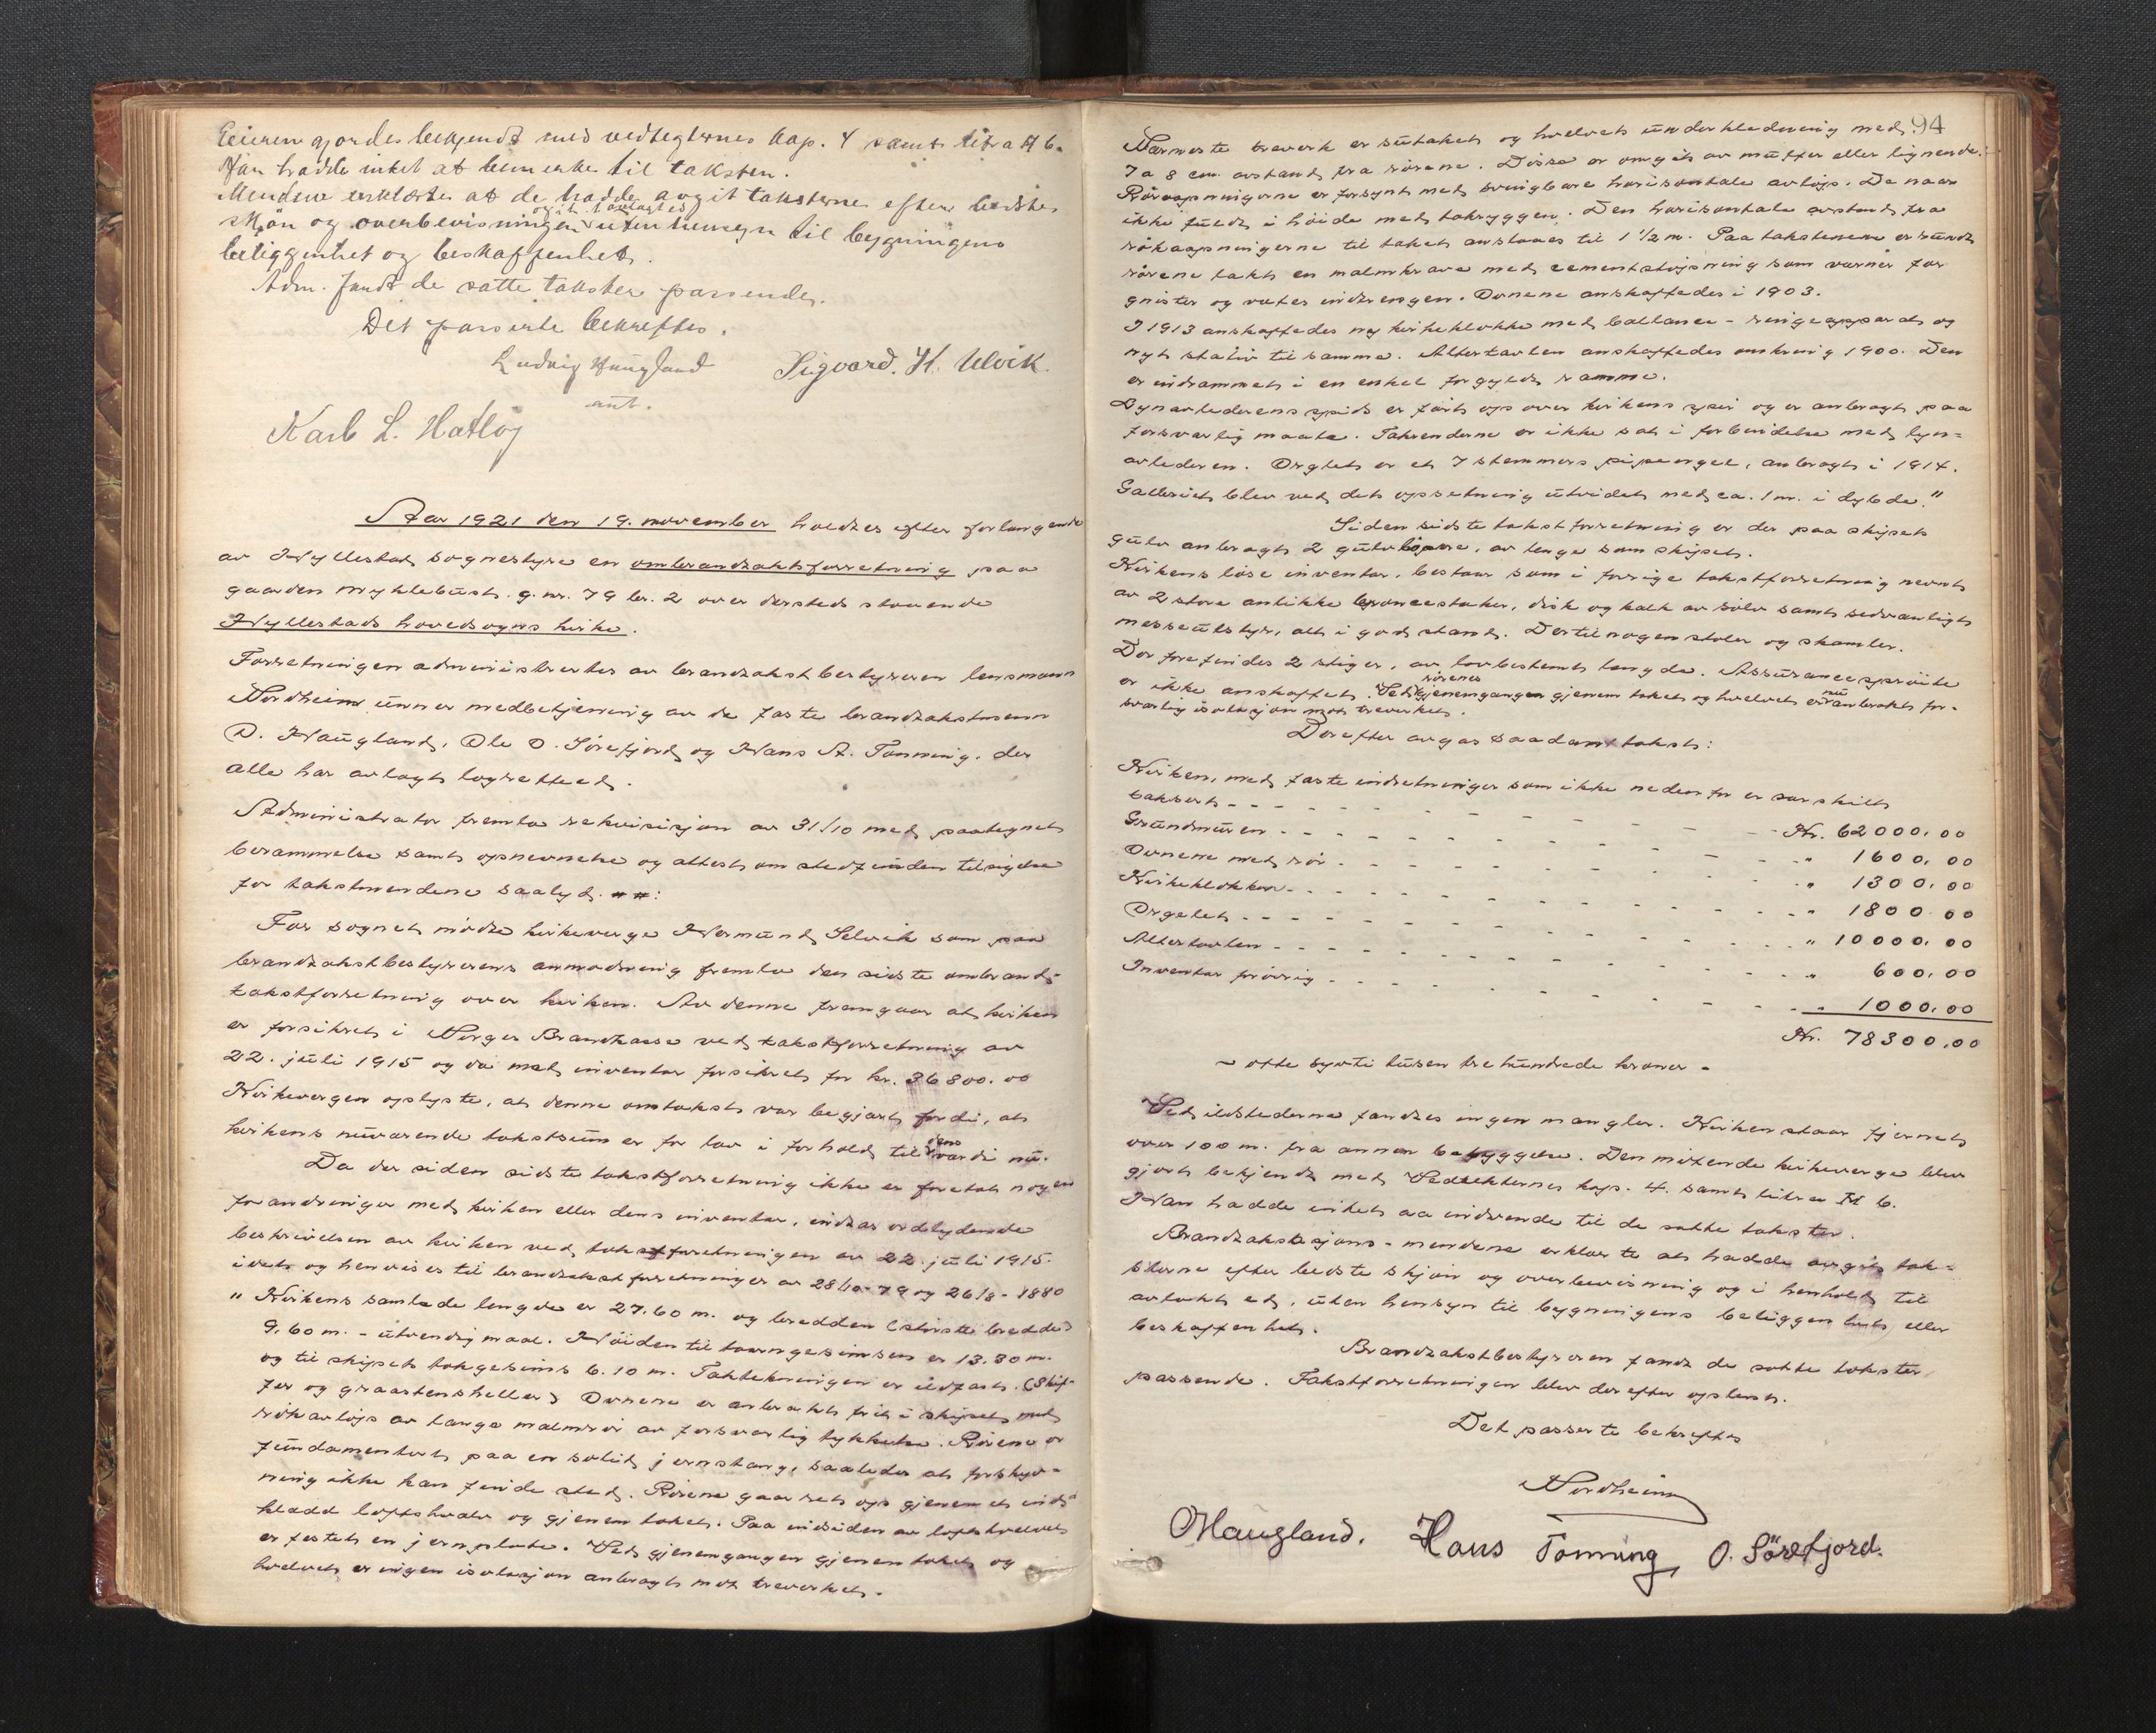 Eieren gjordes bekjendt med vedtegternes kap. 4 samt litra H 6.
Han hadde intet at bemerke til taksten.
Mendene erklærte at de hadde avgit taksterne efter bedste
skjön og overbevisning uten hensyn til bygningens
beliggenhet og beskaffenhet.
Adm. fandt de satte takster passende.
Det passerte bekreftes.
Ludvig Haugland Sigvard. H. Ulvik.
ant.
Karl L. Hatlöy
Aar 1921 den 19. november holdtes efter forlangende
av Hyllestad sognestyre en ombrandtakstforretning paa
gaarden Myklebust. g. nr. 79 br. 2 over dersteds staaende
Hyllestads hovedsogns kirke.
Forretningen administrertes av brandtakstbestyreren lensmann
Nordheim under medbetjening av de faste brandtakstmenn
O. Haugland, Ole O. Sørefjord og Hans A. Tonning. der
alle har avlagt lagretteed.
Administrator fremla rekvisisjon av 31/10 med paategnet
berammelse samt opnevnelse og attest om stedfunden tilsigelse
for takstmendene saalyd.
For sognet mödte kirkeverge Hermund Selvik som paa
brandtakstbestyrerens anmodning fremla den sidste ombrand-
takstforretning over kirken. Av denne fremgaar at kirken
er forsikret i Norges Brandkasse ved takstforretning av
22. juli 1915 og da med inventar forsikret for kr. 36800.00
Kirkevergen oplyste, at denne omtakst var begjært fordi, at
kirkens nuværende takstsum er for lav i forhold til dens værdi nu.
Da der siden sidste takstforretning ikke er foretat nogen
forandringer med kirken eller dens inventar, indtas ordlydende
beskrivelsen av kirken ved takstforretningen av 22. juli 1915.
idet og henvises til brandtakstforretninger av 28/10-79 og 26/8-1880
" Kirkens samlede lengde er 27.60 m. og bredden (største bredde)
9.60 m. - utvendig maal. Höiden til taarngesimsen er 13.30 m.
og til skipets takgesims 6.10 m. Taktekningen er ildfast. (Skif-
fer og graastensheller) Ovnene er anbrakt frit i skipet med
rökavløp av lange malmrör av forsvarlig tykkelse. Rörene er
fundamentert paa en solid jernstang, saaledes at forskyv-
ning ikke kan finde sted. Rörene gaar ret op gjenem et ind-
kledd loftshvelv og gjenem taket. Paa indsiden av loftshvelvet
er festet en jernplate. Ved gjenemgangen gjenem taket og
hvelvet er ingen isolasjon anbragt mot treverket.
94
Nærmeste treverk er sutaket og hvelvets underkledning med
7 a 8 cm. avstand fra rörene. Disse er omgit av muffer eller lignende.
Röraapningerne er forsynt med svingbare horisontale avløp. De naar
ikke fuldt i höide med takryggen. Den horisontale avstand fra
rökaapningerne til taket ansloaes til 1 1/2 m. Paa takstenene er rundt
rörene lakt en malmkrave med cementstöpning som verner for
gnister og vatns indtrengen. Ovnene anskaffedes i 1903.
I 1913 anskaffedes ny kirkeklokke med ballanse-ringeapparat og
nyt stativ til samme. Altertavlen anskaffedes omkring 1900. Den
er indrammet i en enkel forgyldt ramme.
Lynavlederens spids er fört op over kirkens spir og er anbragt paa
forsvarlig maate. Takrenderne er ikke sat i forbindelse med lyn-
avlederen. Orglet er et 7 stemmers pipeorgel, anbragt i 1914.
Galleriet blev ved dets opsetning utvidet med ca. 1 m. i dybde."
Siden sidste takstforretning er der paa skipets
gulv anbragt 2 gulvlöpere, av lengde som skipet.
Kirkens löse inventar, bestaar som i forrige takstforretning nevnt
av 2 store antikke broncestaker, disk og kalk av sölv samt sedvanligt
messeutstyr, alt i god stand. Dertil nogen stoler og skamler.
Der forefindes 2 stiger, av lovbestemt lengde. Assuransespröite
er ikke anskaffet. Ved rörenes gjenemgangen gjenem taket og hvelvet er nu anbrakt for-
svarlig isolasjon mot treverket.
Derefter avgas saadan takst:
Kirken, med faste indretninger som ikke nedenfor er særskilt
taksert - - - Kr. 62000.00
Grundmuren - - - " 1600.00
Ovnene med rör - - - " 1300.00
Kirkeklokken - - - " 1800.00
Orgelet - - - " 10000.00
Altertavlen - - - " 600.00
Inventar forövrig - - - " 1000.00
Kr. 78300.00
- otte sytti tusen trehundrede kroner -
Ved ildstederne fandtes ingen mangler. Kirken staar fjernet
over 100 m. fra annen bebyggelse. Den mötende kirkeverge blev
gjort bekjendt med Vedtekternes kap. 4. samt litra H 6.
Han hadde intet aa indvende til de satte takster.
Brandtakstasjons-mendene erklærte at hadde avgit tak-
sterne efter bedste skjön og overbevisning og i henhold til
avlakt ed, uten hensyn til bygningens beliggenhet eller
beskaffenhet.
Brandtakstbestyreren fandt de satte takster
passende. Takstforretningen blev derefter oplest.
Det passerte bekreftes
Nordheim
O Haugland. Hans Tonning O. Sörefjord.